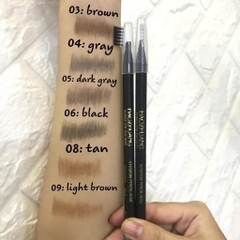 03: brown
04: gray
05: dark gray
06: black
08: tan
09: light brown